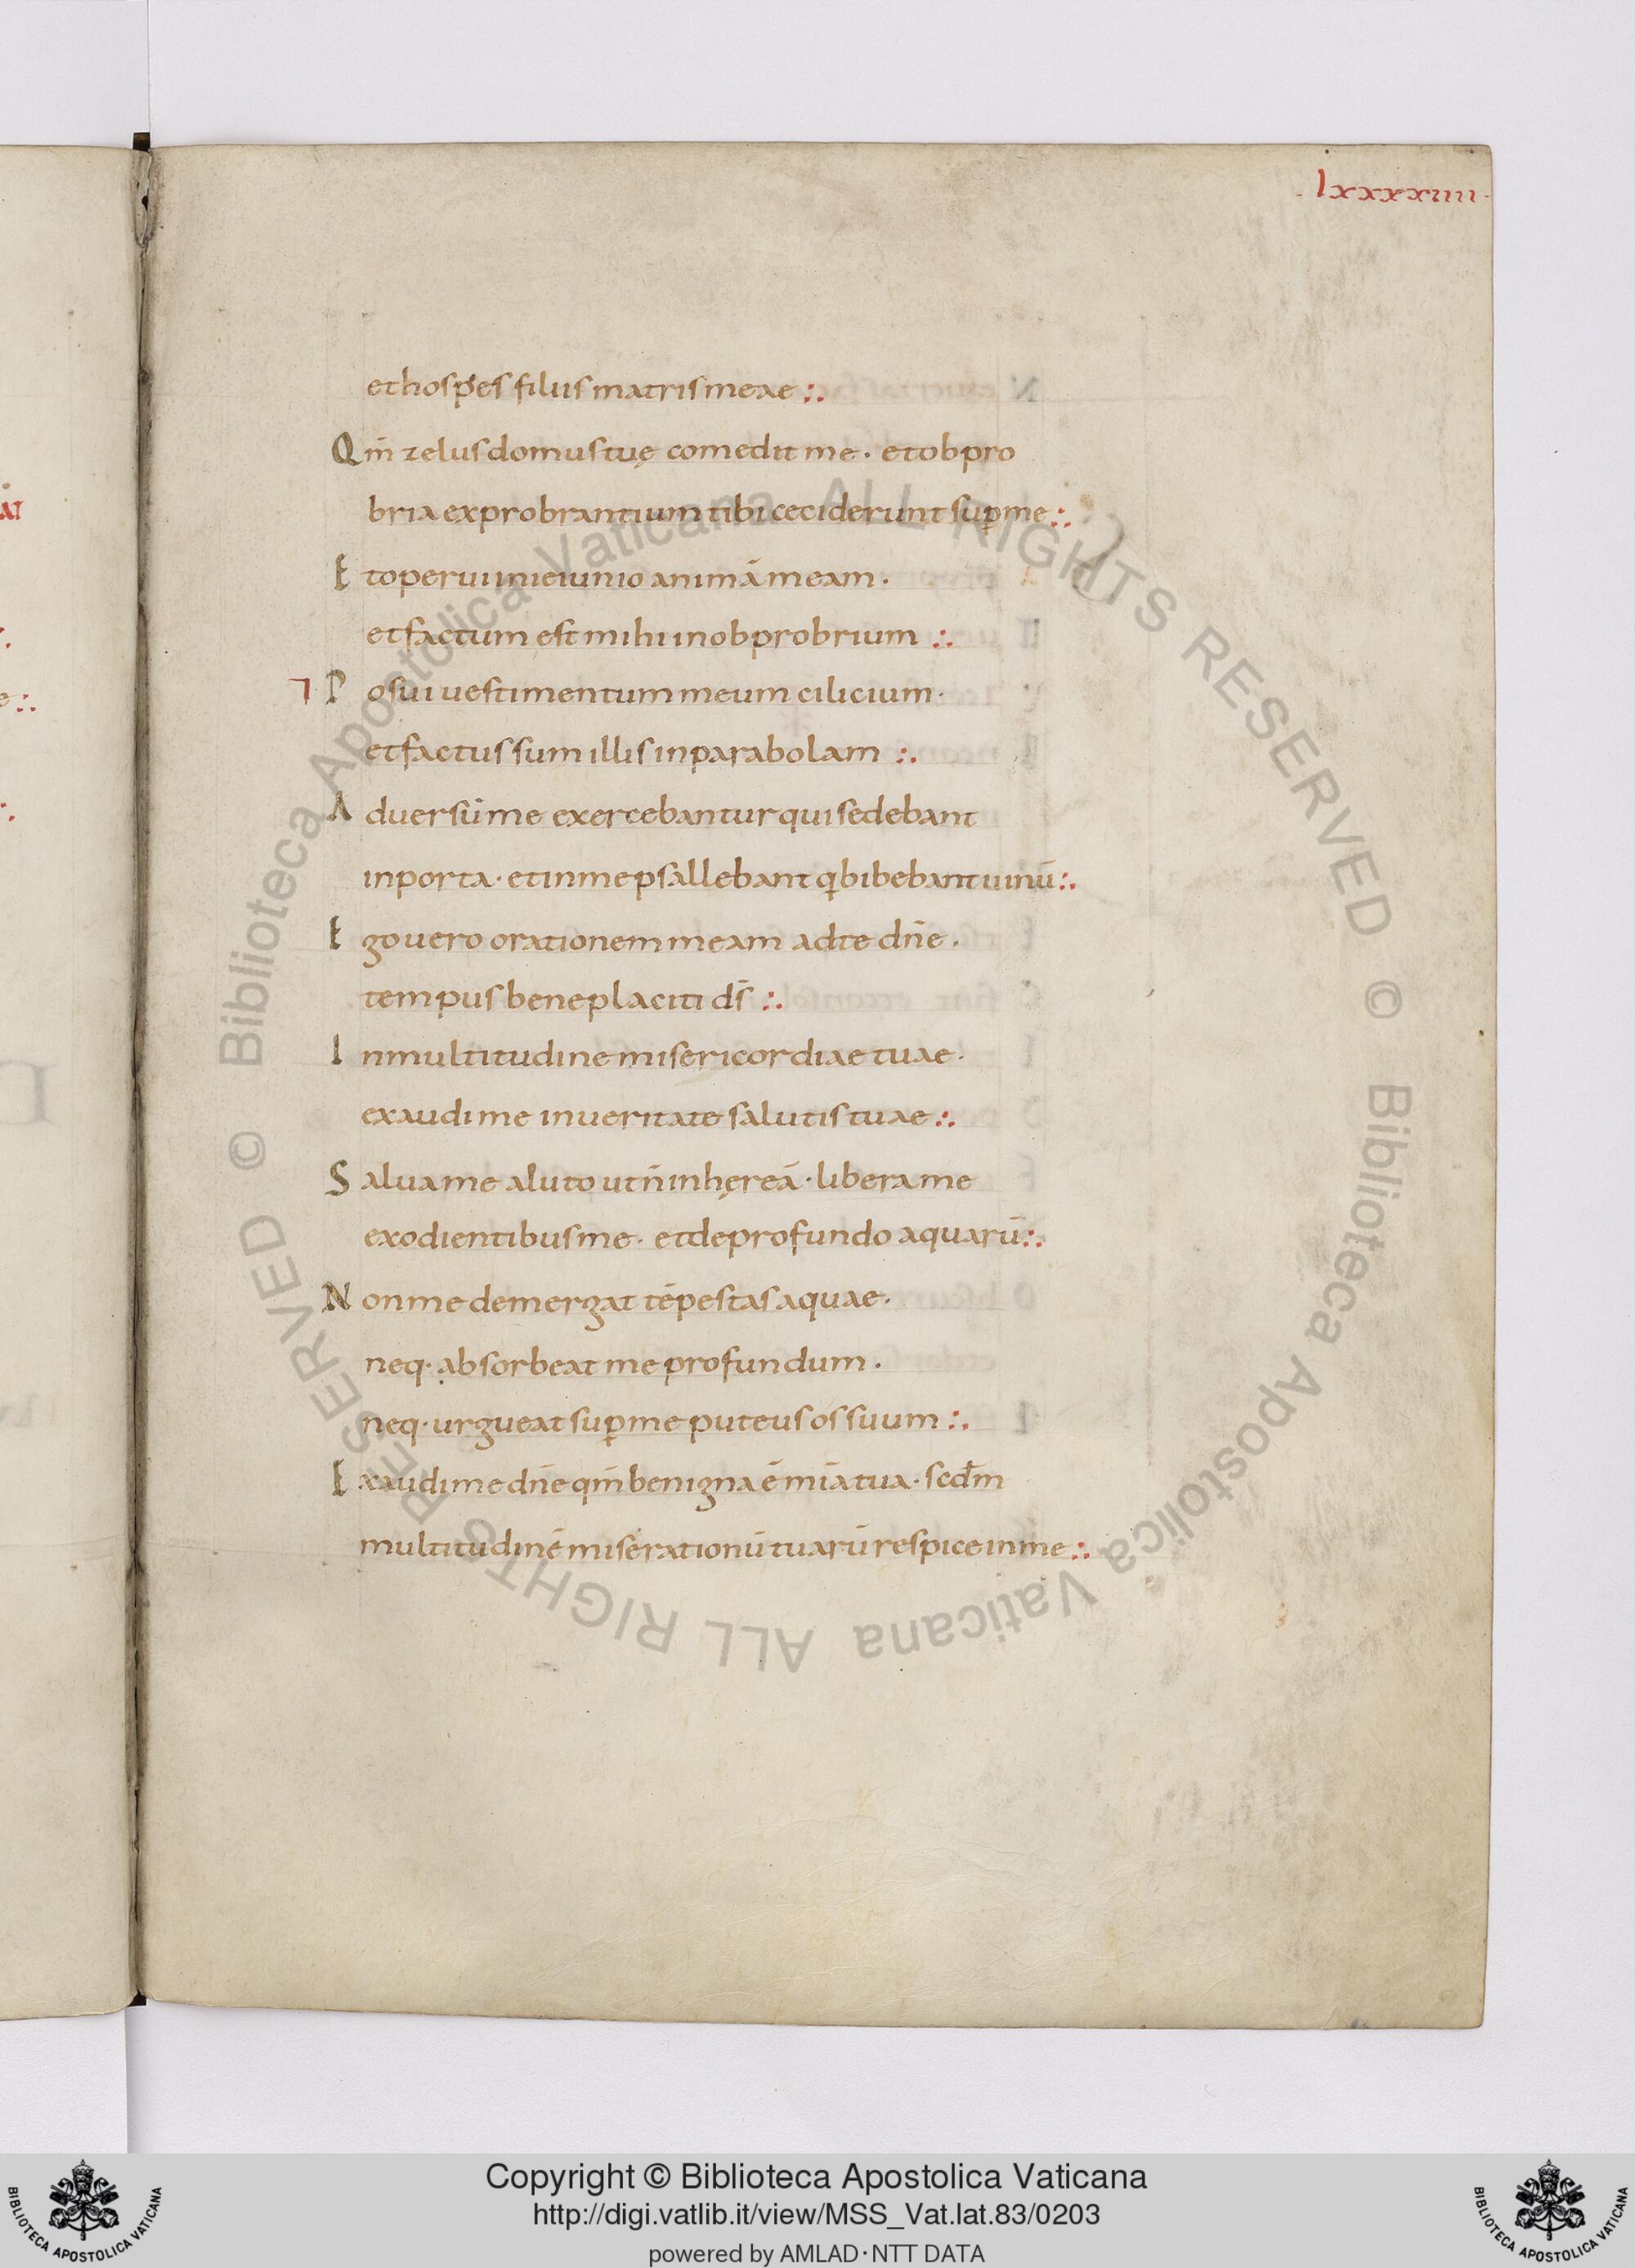 lxxxxiiii
et hospes filiis matris meae :.
Qm̄ zelus domus tuę comedit me · et obpro
bria exprobrantium tibi ceciderunt sup̄ me :.
Et operui in ieiunio animā meam ·
et factum est mihi in obprobrium :.
Posui uestimentum meum cilicium ·
et factus sum illis in parabolam :.
Aduersū me exercebantur qui sedebant
in porta · et in me psallebant q̇ bibebant uinū :.
Ego uero orationem meam ad te dn̄e ·
tempus beneplaciti ds̄ :.
In multitudine misericordiae tuae ·
exaudi me in ueritate salutis tuae :.
Salua me a luto ut n̄ inhęreā · libera me
ex odientibus me · et de profundo aquarū :.
Non me demergat tēpestas aquae ·
neq· absorbeat me profundum ·
neq· urgueat sup̄ me puteus os suum :.
Exaudi me dn̄e qm̄ benigna ē mīa tua · scdm̄
multitudinē miserationū tuarū respice in me :.
© Biblioteca Apostolica Vaticana ALL RIGHTS RESERVED
© Biblioteca Apostolica Vaticana ALL RIGHTS RESERVED
Copyright © Biblioteca Apostolica Vaticana
http://digi.vatlib.it/view/MSS_Vat.lat.83/0203
powered by AMLAD·NTT DATA
BIBLIOTECA APOSTOLICA VATICANA
BIBLIOTECA APOSTOLICA VATICANA